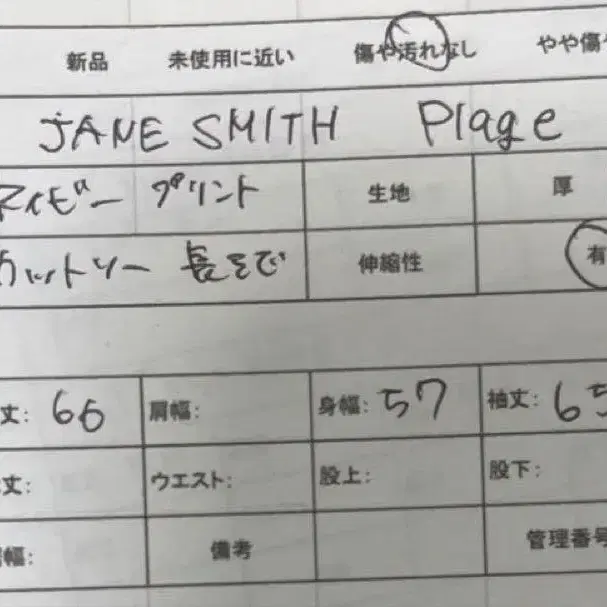 新品 未使用に近い 傷や汚れなし やや傷
JANE SMITH Plage
ネイビー プリント 生地 厚
カットソー 長そで 伸縮性 有
丈: 66 肩幅: 身幅: 57 袖丈: 65
丈: ウエスト: 股上: 股下:
幅: 備考 管理番号